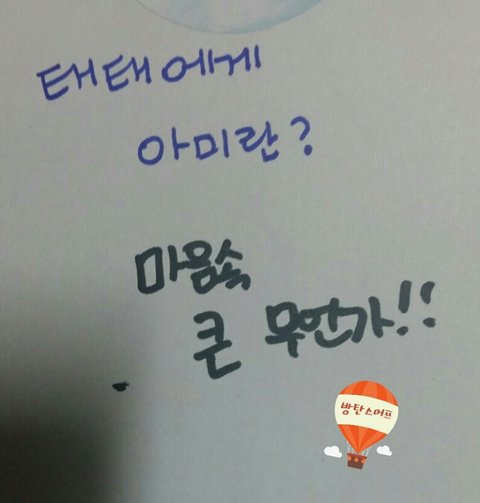 태태에게
아미란?
마음속
큰 무언가!!
방탄스머프